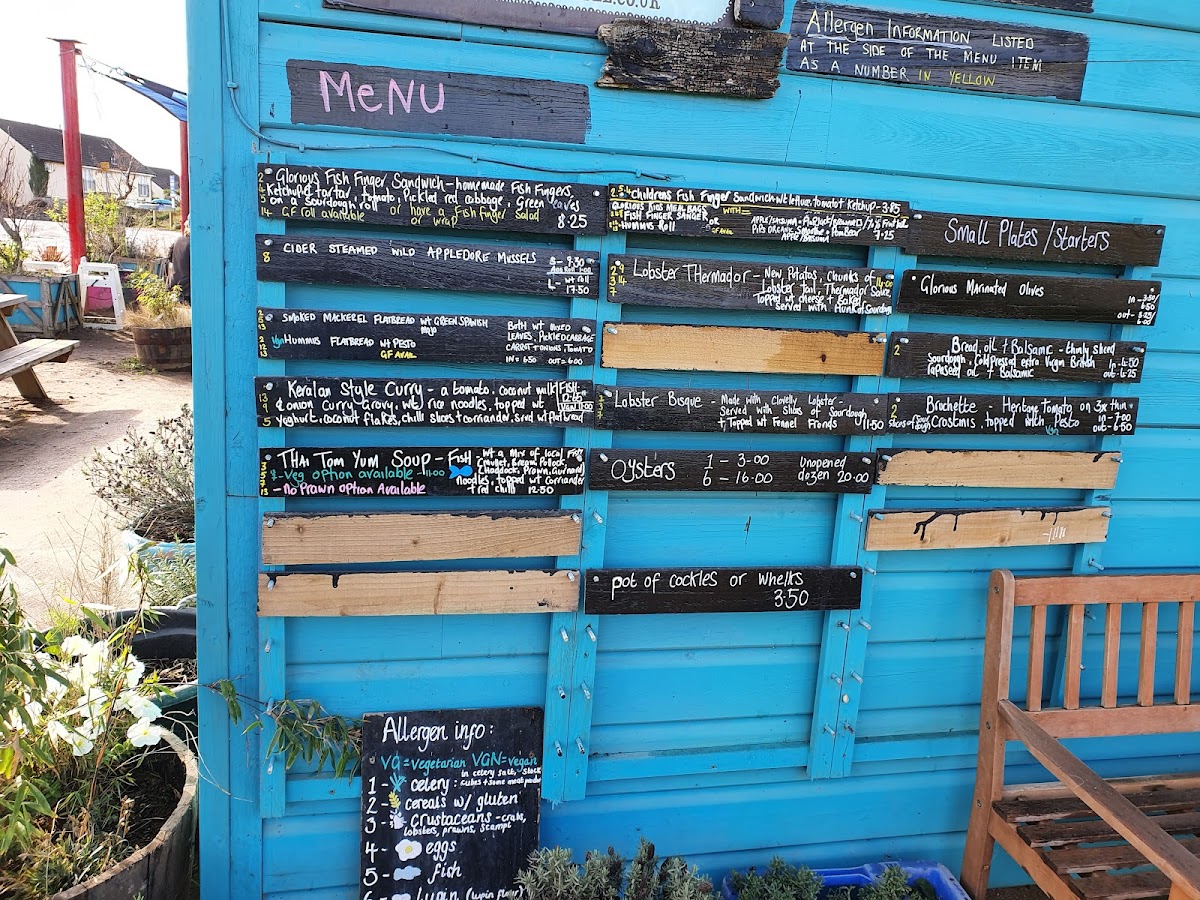 Allergen Information listed
at the side of the menu item
as a number in yellow
MeNU
2 Glorious Fish Finger Sandwich - homemade Fish Fingers,
4 Ketchup, tartar, tomato, Pickled red cabbage, Green leaves
5 on a Sourdough roll
14 GF roll available or have a fish finger salad
or wrap 8.25
CIDER STEAMED WILD APPLEDORE MUSSELS
8
L - wt roll
17.50
SMOKED MACKEREL FLATBREAD wt GREEN SPANISH
Mayo
Vgn HUMMUS FLATBREAD wt PESTO
GF AVAIL
BOTH WT MIXED
LEAVES, PICKLED CABBAGE
CARROT + ONIONS, TOMATO
IN = 6.50 OUT = 6.00
Keralan Style Curry - a tomato, coconut milk
& onion curry gravy, wt rice noodles, topped wt
Yoghurt, coconut flakes, chilli slices + corriander
FISH
THAI TOM YUM SOUP - FISH
- Veg option available - 11.00
- no Prawn option Available
wt a mix of local Fish
noodles, topped wt corriander
+ red chilli 12.50
Childrens Fish Finger Sandwich wt leaves, tomato + Ketchup - 3.95
GLORIOUS KIDS MEAL BAGS
FISH FINGER SANGER OR
HUMMUS ROLL
GF AVAIL
7.25
Lobster Thermador - New Potatos, Chunks of
Lobster tail, Thermador Sauce,
Topped wt cheese + Baked
served with Hunk of Sourdough
Lobster Bisque - Made with Clovelly Lobster -
Served with Slices of Sourdough
+ Topped wt Fennel Fronds 11.50
OYSTERS 1 - 3.00
6 - 16.00
unopened
dozen 20.00
pot of cockles or whelks
3.50
Small Plates / Starters
Glorious Marinated Olives
6.00
2 Bread, oil + Balsamic - thinly sliced
Sourdough, Cold Pressed extra Virgin British
rapeseed oil + Balsamic
Bruchette - Heritage Tomato on 3 x thin
Crostinis, topped with Pesto
in - 7.00
out - 6.50
Allergen info:
VG = vegetarian VGN = vegan
1 - celery: in celery salt, stock
cubes + some meat produce
2 - cereals w/ gluten
3 - crustaceans - crabs,
lobsters, prawns, scampi
4 - eggs
5 - fish
6 - Lupin (lupin flour